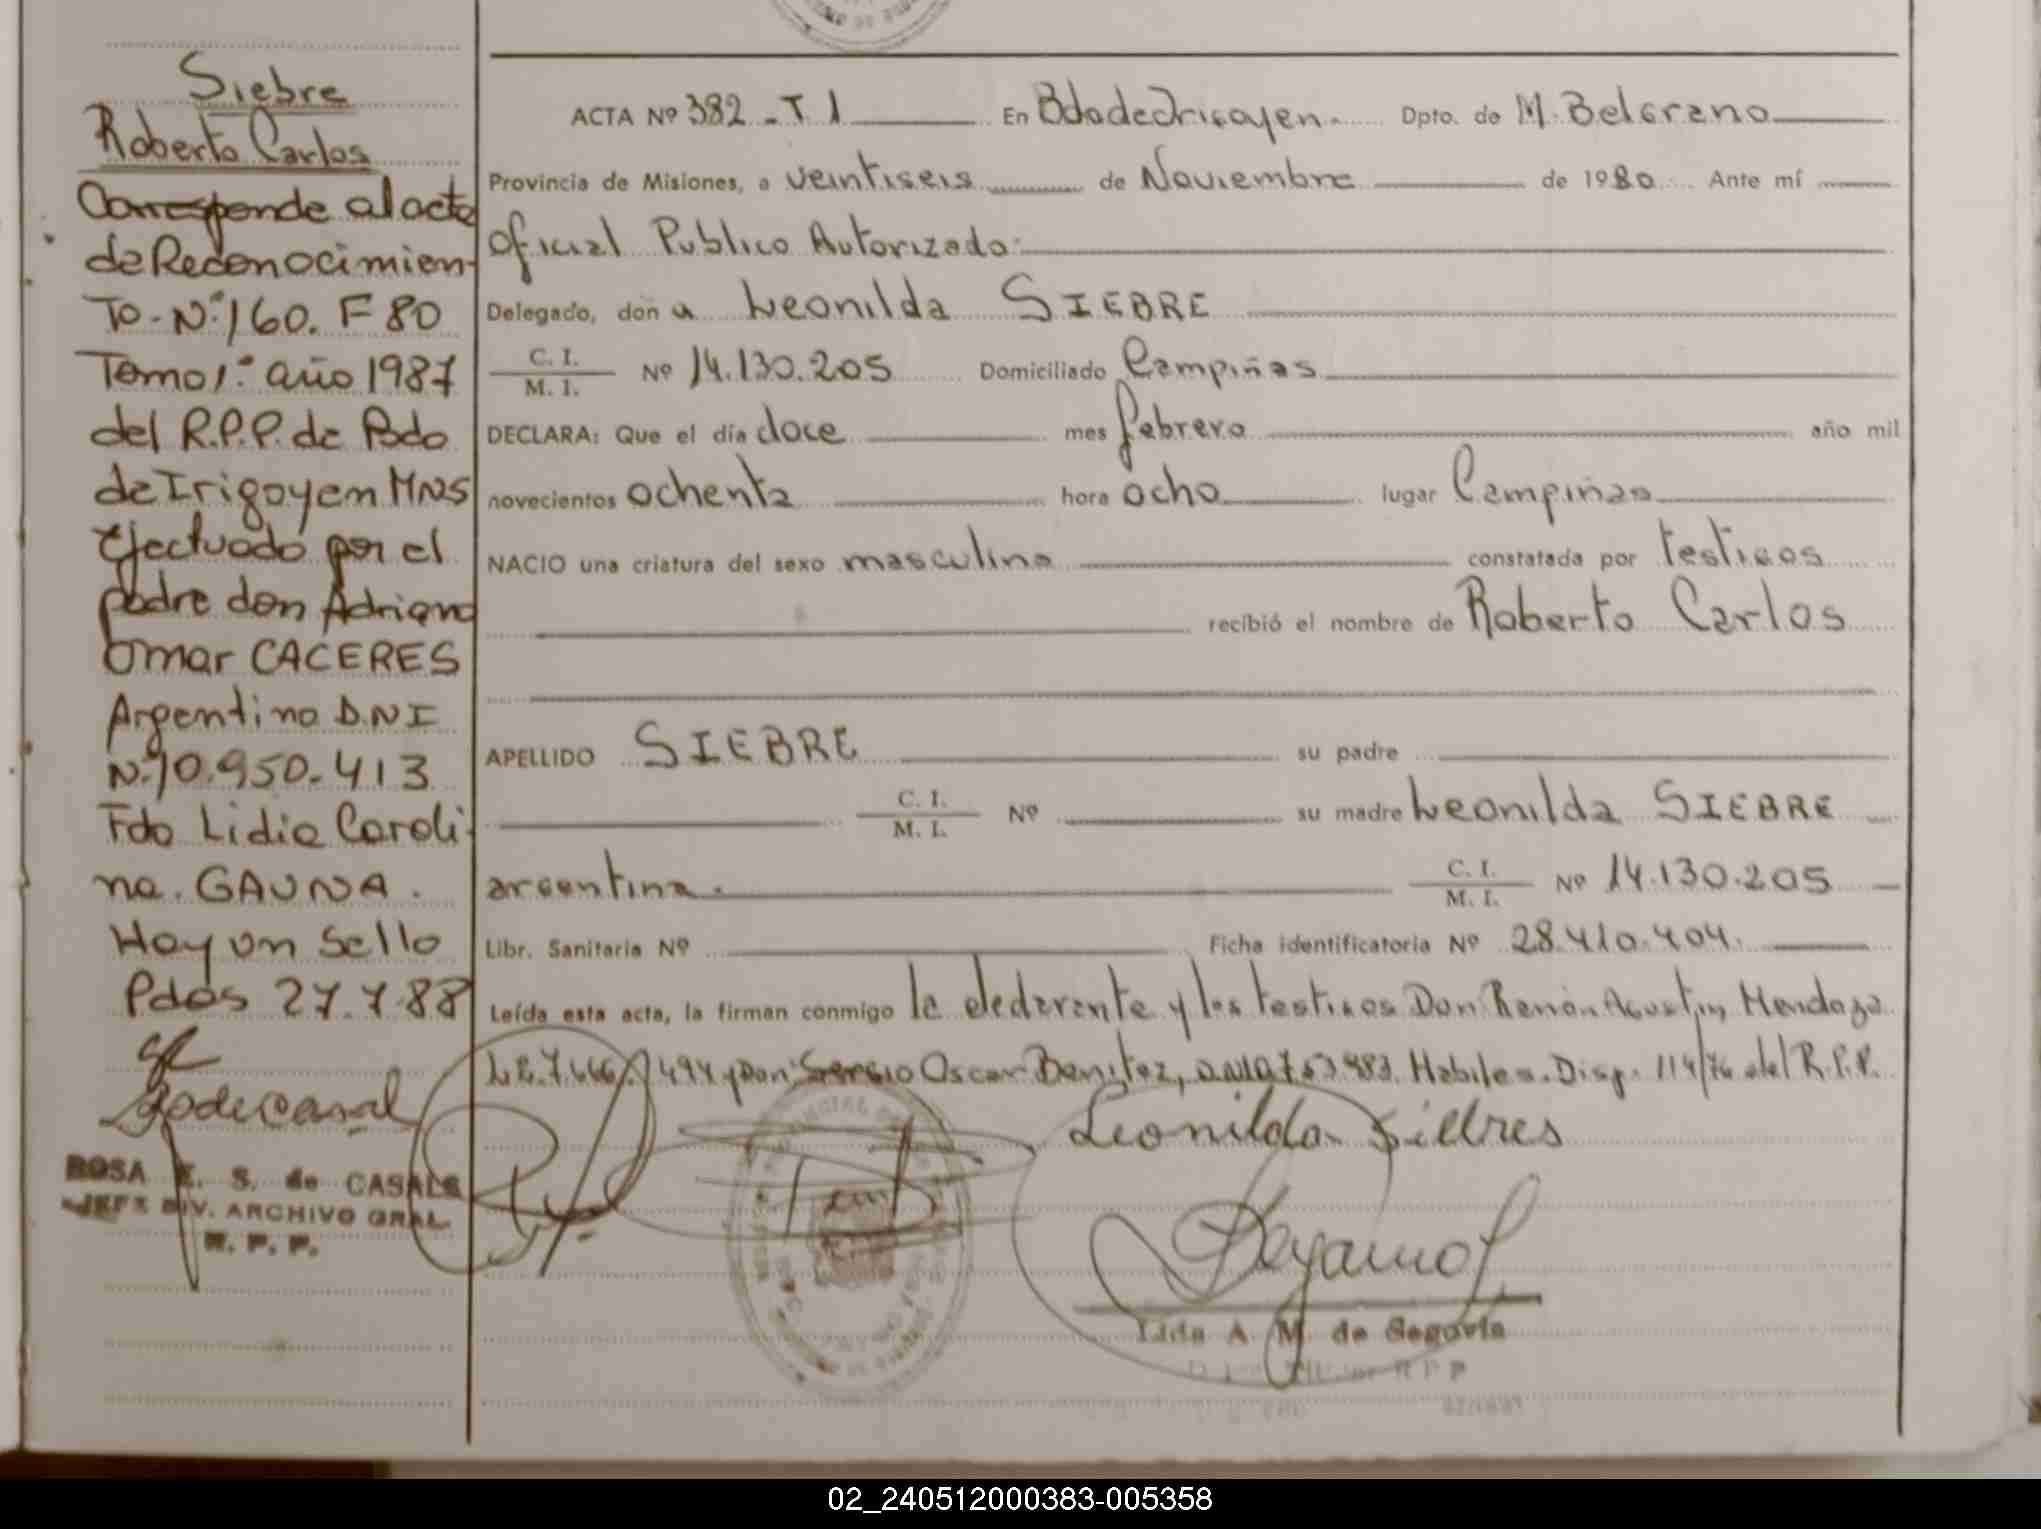 Siebre
Roberto Carlos
Corresponde al acta
de Reconocimien-
to- Nº 160. F 80
Tomo 1º año 1987
del R.P.P. de Bdo
de Irigoyen MNS
Efectuado por el
padre don Adriano
Omar CACERES
Argentino D.N I
Nº 10.950.413
Fdo Lidia Caroli-
na. GAUNA.
Hay un Sello
Pdas 27.7.88
ROSA E. S. de CASALS
JEFE DIV. ARCHIVO GRAL.
R. P. P.
ACTA Nº 382 - T 1 En Bdo de Irigoyen. Dpto. de M. Belgrano
Provincia de Misiones, a veintiseis de Noviembre de 1980 Ante mí
Oficial Publico Autorizado:
Delegado, don a Leonilda SIEBRE
C. I.
M. I. Nº 14.130.205 Domiciliado Campiñas
DECLARA: Que el día doce mes febrero año mil
novecientos ochenta hora ocho lugar Campiñas
NACIO una criatura del sexo masculino constatada por testigos
recibió el nombre de Roberto Carlos
APELLIDO SIEBRE su padre
C. I.
M. I. Nº su madre Leonilda SIEBRE
argentina. C. I.
M. I. Nº 14.130.205
Libr. Sanitaria Nº Ficha identificatoria Nº 28.410.404.
Leída esta acta, la firman conmigo la declarante y los testigos Don Ramón Agustin Mendoza
L.E. 494 y Don Sergio Oscar Benitez, Habiles. Disp. 114/76 del R.P.P.
Leonilda Siebres
Lida A. M. de Segovia
R P P
02_240512000383-005358